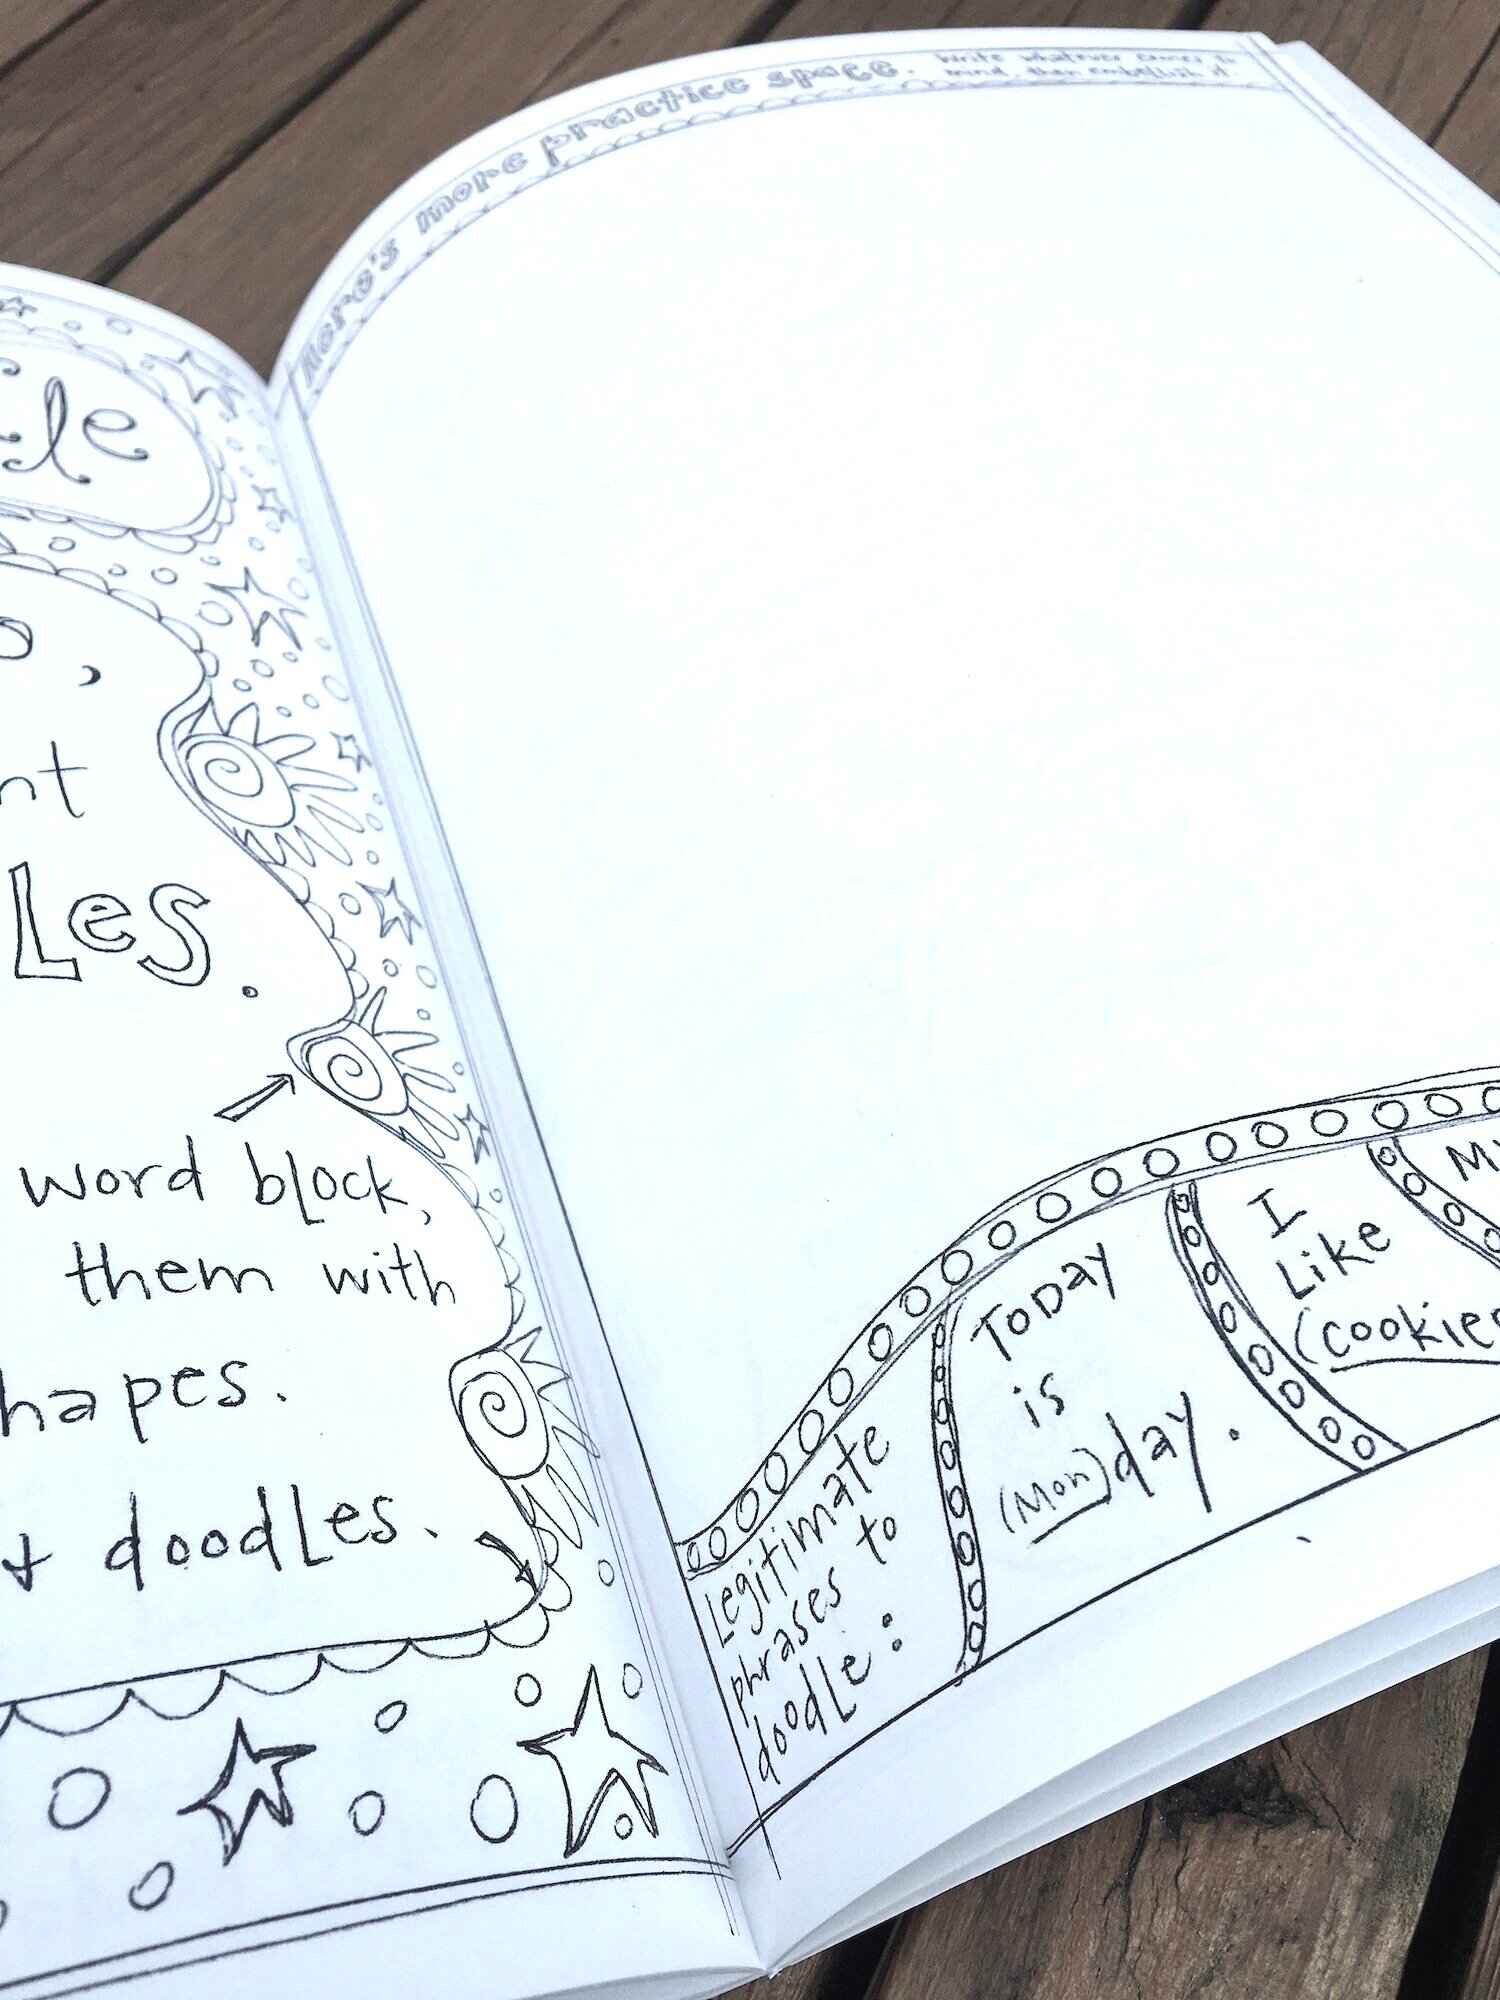 Le
Les.
word block,
them with
hapes.
doodLes.
Here's more practice space.
Write whatever comes to
mind, then embellish it.
Legitimate
phrases to
doodLe:
Today
is
(Mon)day.
I
Like
(cookie